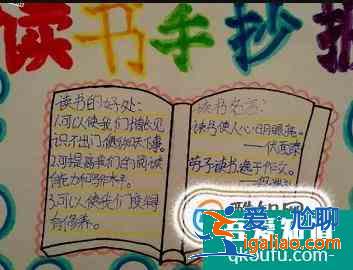 读书手抄报
读书的好处:
1.可以使我们增长见
识不出门便知天下事。
2.可提高我们的阅读
能力和写作水平。
3.可以使我们变得
有修养。
读书名言:
读书使人心明眼亮。
——伏尔泰
劳于读书,逸于作文。
爱尬聊
igaliao.com
https://www.qisufu.com/